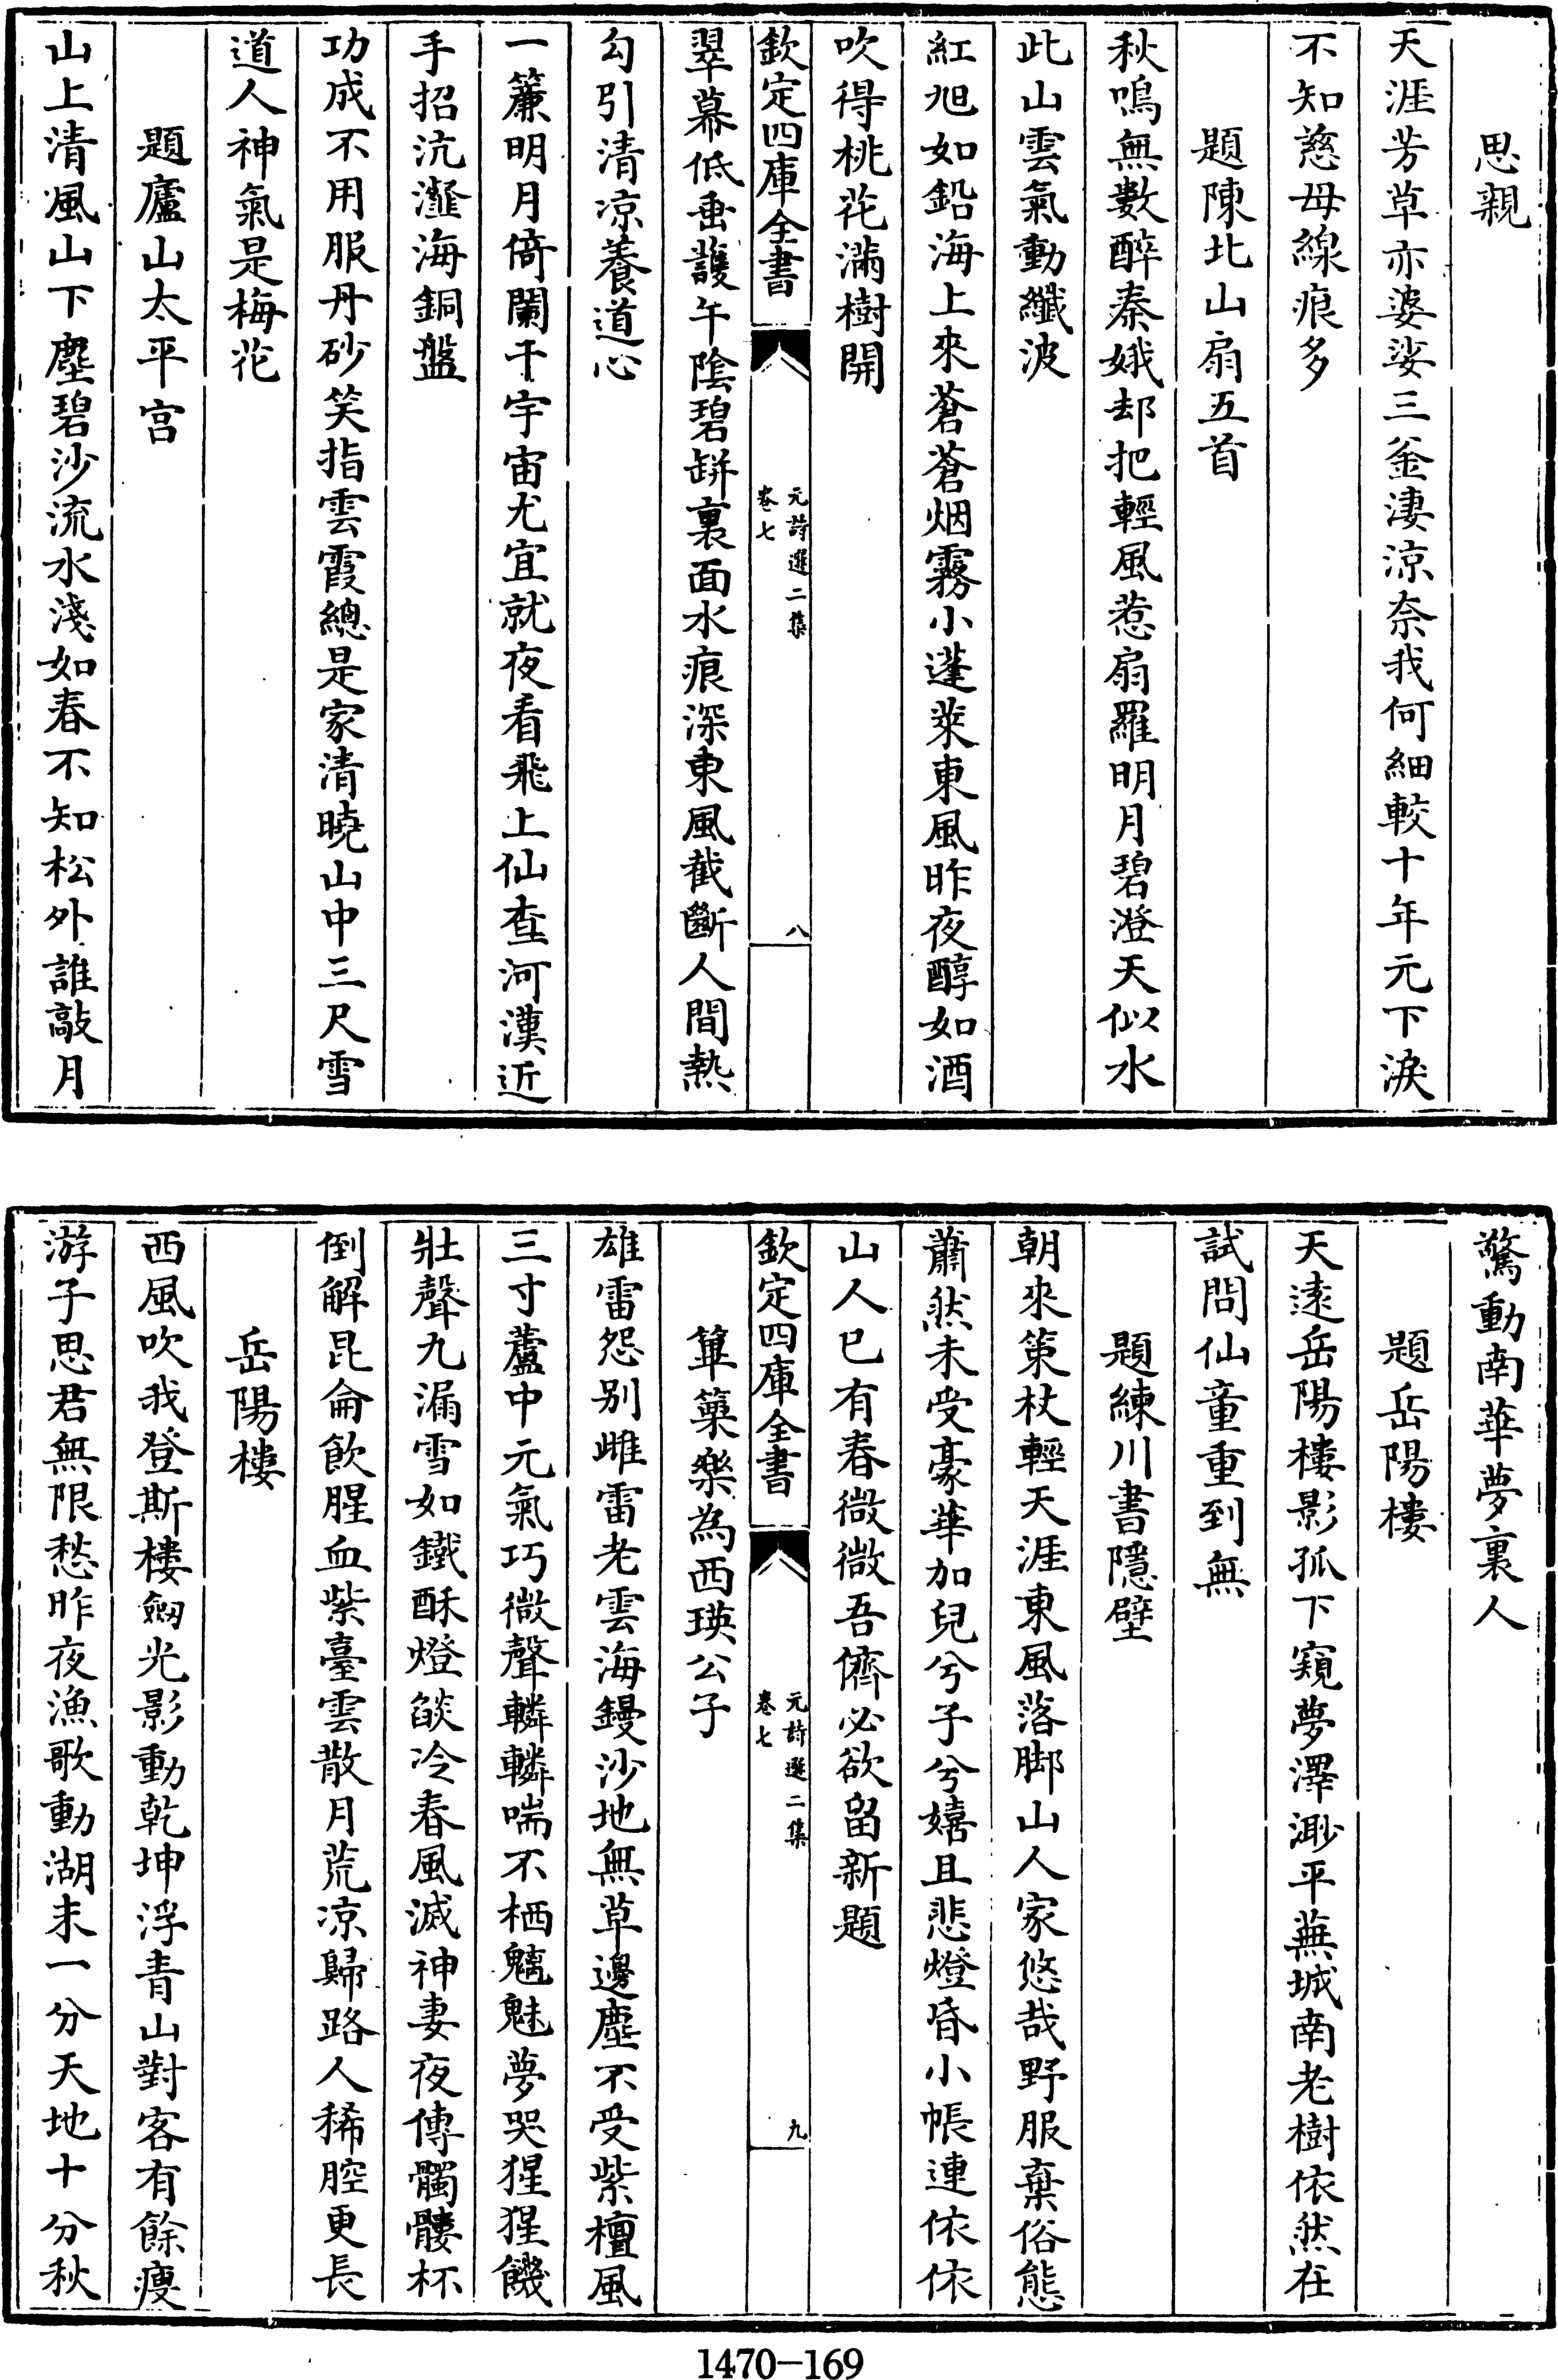 思親
天涯芳草亦婆娑三釜淒涼奈我何細較十年元下淚
不知慈母線痕多
題陳北山扇五首
秋鳴無數醉秦娥却把輕風惹扇羅明月碧澄天似水
此山雲氣動纖波
紅旭如鉛海上來蒼蒼烟霧小蓬萊東風昨夜醇如酒
吹得桃花滿樹開
欽定四庫全書
元詩選二集
卷七
八
翠幕低垂護午陰碧缾裏面水痕深東風截斷人間熱
勾引清涼養道心
一簾明月倚闌干宇宙尤宜就夜看飛上仙查河漢近
手招沆瀣海銅盤
功成不用服丹砂笑指雲霞總是家清曉山中三尺雪
道人神氣是梅花
題廬山太平宮
山上清風山下塵碧沙流水淺如春不知松外誰敲月
驚動南華夢裏人
題岳陽樓
天遠岳陽樓影孤下窺夢澤渺平蕪城南老樹依然在
試問仙童重到無
題練川書隱壁
朝來策杖輕天涯東風落脚山人家悠哉野服棄俗態
蕭然未受豪華加兒兮子兮嬉且悲燈昏小帳連依依
山人已有春微微吾儕必欲留新題
欽定四庫全書
元詩選二集
卷七
九
篳篥樂為西瑛公子
雄雷怨别雌雷老雲海鏝沙地無草邊塵不受紫檀風
三寸蘆中元氣巧微聲轔轔喘不栖魑魅夢哭猩猩饑
壯聲九漏雪如鐵酥燈燄冷春風滅神妻夜傳髑髏杯
倒解昆侖飲腥血紫臺雲散月荒涼歸路人稀腔更長
岳陽樓
西風吹我登斯樓劒光影動乾坤浮青山對客有餘瘦
游子思君無限愁昨夜漁歌動湖末一分天地十分秋
1470-169